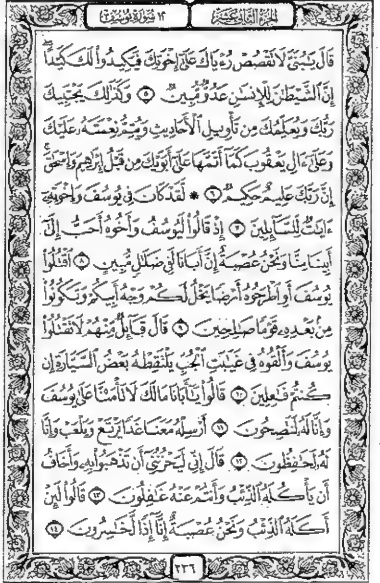 الجزء الثاني عشر ١٢ سورة يوسف
قَالَ يَٰبُنَيَّ لَا تَقْصُصْ رُءْيَاكَ عَلَىٰٓ إِخْوَتِكَ فَيَكِيدُوا۟ لَكَ كَيْدًا ۖ
إِنَّ ٱلشَّيْطَٰنَ لِلْإِنسَٰنِ عَدُوٌّ مُّبِينٌ ۝٥ وَكَذَٰلِكَ يَجْتَبِيكَ
رَبُّكَ وَيُعَلِّمُكَ مِن تَأْوِيلِ ٱلْأَحَادِيثِ وَيُتِمُّ نِعْمَتَهُۥ عَلَيْكَ
وَعَلَىٰٓ ءَالِ يَعْقُوبَ كَمَآ أَتَمَّهَا عَلَىٰٓ أَبَوَيْكَ مِن قَبْلُ إِبْرَٰهِيمَ وَإِسْحَٰقَ ۚ
إِنَّ رَبَّكَ عَلِيمٌ حَكِيمٌ ۝٦ ۞ لَّقَدْ كَانَ فِى يُوسُفَ وَإِخْوَتِهِۦٓ
ءَايَٰتٌ لِّلسَّآئِلِينَ ۝٧ إِذْ قَالُوا۟ لَيُوسُفُ وَأَخُوهُ أَحَبُّ إِلَىٰٓ
أَبِينَا مِنَّا وَنَحْنُ عُصْبَةٌ إِنَّ أَبَانَا لَفِى ضَلَٰلٍ مُّبِينٍ ۝٨ ٱقْتُلُوا۟
يُوسُفَ أَوِ ٱطْرَحُوهُ أَرْضًا يَخْلُ لَكُمْ وَجْهُ أَبِيكُمْ وَتَكُونُوا۟
مِنۢ بَعْدِهِۦ قَوْمًا صَٰلِحِينَ ۝٩ قَالَ قَآئِلٌ مِّنْهُمْ لَا تَقْتُلُوا۟
يُوسُفَ وَأَلْقُوهُ فِى غَيَٰبَتِ ٱلْجُبِّ يَلْتَقِطْهُ بَعْضُ ٱلسَّيَّارَةِ إِن
كُنتُمْ فَٰعِلِينَ ۝١٠ قَالُوا۟ يَٰٓأَبَانَا مَالَكَ لَا تَأْمَ۫نَّا عَلَىٰ يُوسُفَ
وَإِنَّا لَهُۥ لَنَٰصِحُونَ ۝١١ أَرْسِلْهُ مَعَنَا غَدًا يَرْتَعْ وَيَلْعَبْ وَإِنَّا
لَهُۥ لَحَٰفِظُونَ ۝١٢ قَالَ إِنِّى لَيَحْزُنُنِىٓ أَن تَذْهَبُوا۟ بِهِۦ وَأَخَافُ
أَن يَأْكُلَهُ ٱلذِّئْبُ وَأَنتُمْ عَنْهُ غَٰفِلُونَ ۝١٣ قَالُوا۟ لَئِنْ
أَكَلَهُ ٱلذِّئْبُ وَنَحْنُ عُصْبَةٌ إِنَّآ إِذًا لَّخَٰسِرُونَ ۝١٤
٢٣٦